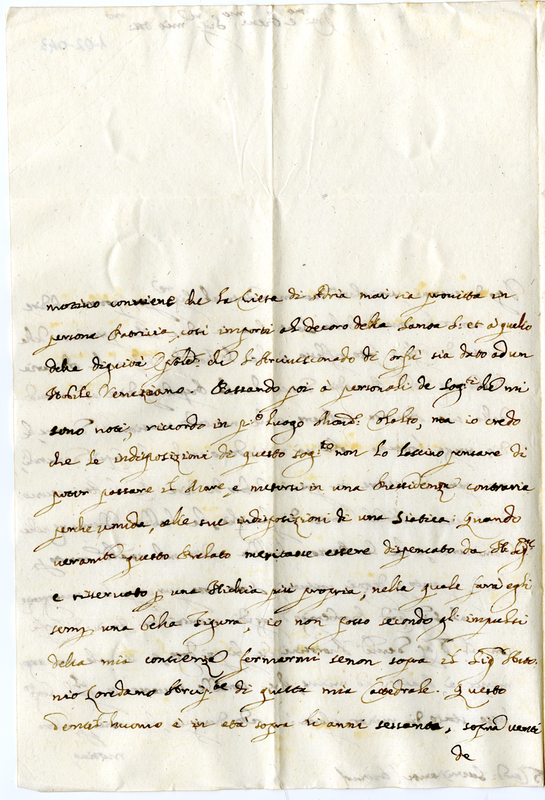 motivo conviene che la Città di Adria mai sia provista in
persona Patricia, così importi al decoro della Santa S. et à quello
della dignità che l'Arcivescovado di Corfù sia dato ad un
Nobile Veneziano. Passando poi a personali de sog.ti che mi
sono noti, ricordo in p.o luogo Mons.r ma io credo
che le indisposizioni di questo sog.to non lo lascino pensare di
poter passare il Mare, e mettersi in una Residenza contraria
perche umida, alle sue indisposizioni di una Siatica; Quando
veram.te questo Prelato meritasse essere dispensato da
e riservato p una Chiesa più propria, nella quale farà egli
semp una bella figura, io non posso secondo gl'impulsi
della mia conscienza fermarmi senon sopra il Sig.r Anto-
nio Loredano Arcip.te di questa mia Cattedrale. Questo
Gentilhuomo è in età sopra li anni sessanta, sopra venti
de